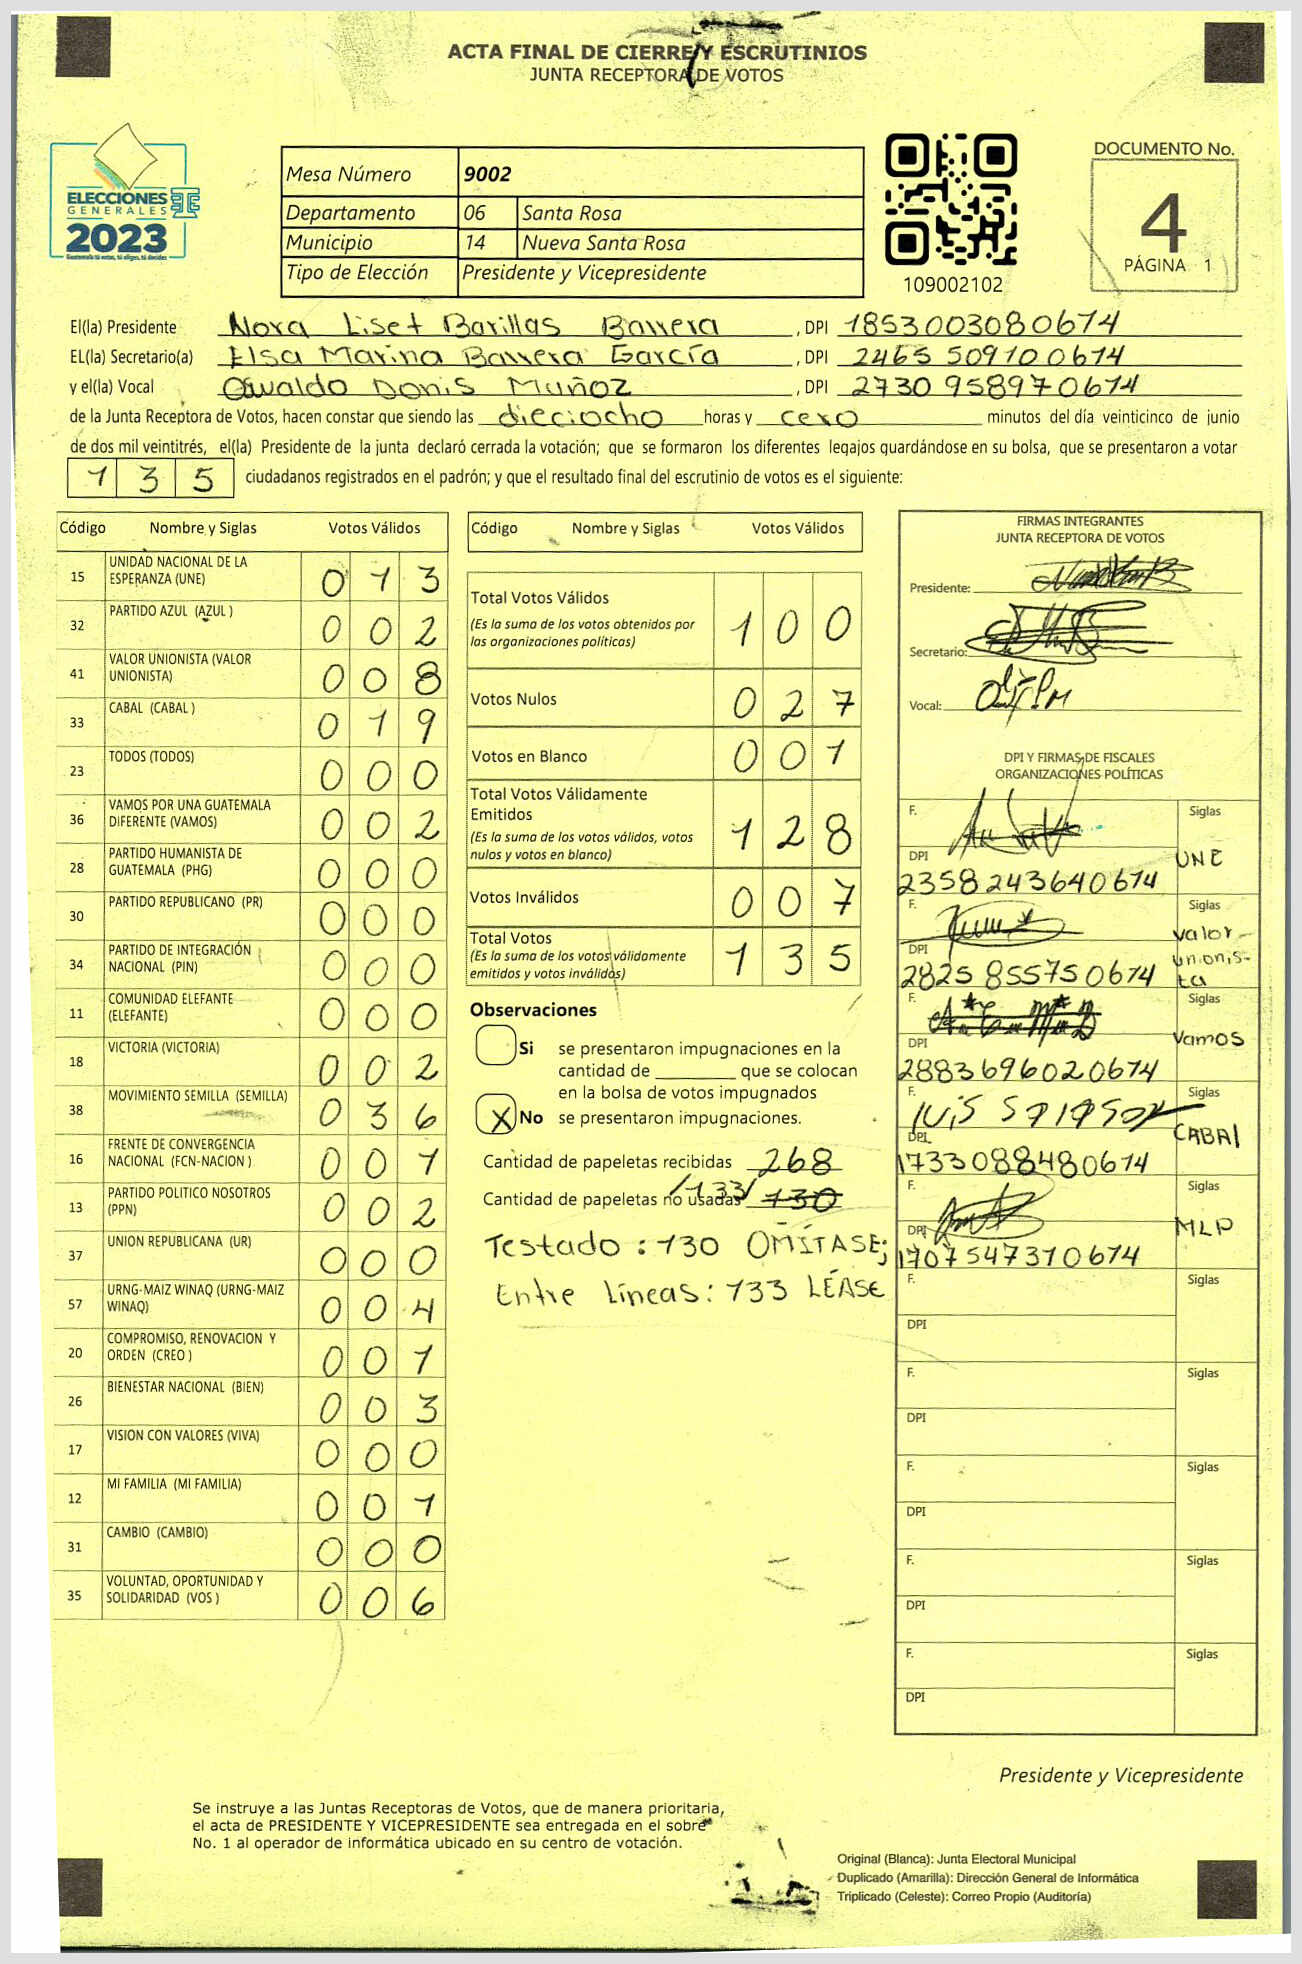 ACTA FINAL DE CIERRE Y ESCRUTINIOS
JUNTA RECEPTORA DE VOTOS
ELECCIONES
GENERALES
2023
Guatemala tú votas, tú eliges, tú decides
Mesa Número 9002
Departamento 06 Santa Rosa
Municipio 14 Nueva Santa Rosa
Tipo de Elección Presidente y Vicepresidente
109002102
DOCUMENTO No.
4
PÁGINA 1
El(la) Presidente Nora Liset Barillas Barrera, DPI 1853003080674
EL(la) Secretario(a) Elsa Marina Barrera García, DPI 2465 509100674
y el(la) Vocal Oswaldo Donis Muñoz, DPI 2730 958970614
de la Junta Receptora de Votos, hacen constar que siendo las dieciocho horas y cero minutos del día veinticinco de junio
de dos mil veintitrés, el(la) Presidente de la junta declaró cerrada la votación; que se formaron los diferentes legajos guardándose en su bolsa, que se presentaron a votar
1 3 5 ciudadanos registrados en el padrón; y que el resultado final del escrutinio de votos es el siguiente:
Código Nombre y Siglas Votos Válidos
15 UNIDAD NACIONAL DE LA ESPERANZA (UNE) 0 1 3
32 PARTIDO AZUL (AZUL ) 0 0 2
41 VALOR UNIONISTA (VALOR UNIONISTA) 0 0 8
33 CABAL (CABAL ) 0 1 9
23 TODOS (TODOS) 0 0 0
36 VAMOS POR UNA GUATEMALA DIFERENTE (VAMOS) 0 0 2
28 PARTIDO HUMANISTA DE GUATEMALA (PHG) 0 0 0
30 PARTIDO REPUBLICANO (PR) 0 0 0
34 PARTIDO DE INTEGRACIÓN NACIONAL (PIN) 0 0 0
11 COMUNIDAD ELEFANTE (ELEFANTE) 0 0 0
18 VICTORIA (VICTORIA) 0 0 2
38 MOVIMIENTO SEMILLA (SEMILLA) 0 3 6
16 FRENTE DE CONVERGENCIA NACIONAL (FCN-NACION ) 0 0 1
13 PARTIDO POLITICO NOSOTROS (PPN) 0 0 2
37 UNION REPUBLICANA (UR) 0 0 0
57 URNG-MAIZ WINAQ (URNG-MAIZ WINAQ) 0 0 4
20 COMPROMISO, RENOVACION Y ORDEN (CREO ) 0 0 1
26 BIENESTAR NACIONAL (BIEN) 0 0 3
17 VISION CON VALORES (VIVA) 0 0 0
12 MI FAMILIA (MI FAMILIA) 0 0 1
31 CAMBIO (CAMBIO) 0 0 0
35 VOLUNTAD, OPORTUNIDAD Y SOLIDARIDAD (VOS ) 0 0 6
Código Nombre y Siglas Votos Válidos
Total Votos Válidos 1 0 0
(Es la suma de los votos obtenidos por
las organizaciones políticas)
Votos Nulos 0 2 7
Votos en Blanco 0 0 1
Total Votos Válidamente
Emitidos 1 2 8
(Es la suma de los votos válidos, votos
nulos y votos en blanco)
Votos Inválidos 0 0 7
Total Votos 1 3 5
(Es la suma de los votos válidamente
emitidos y votos inválidos)
Observaciones
Si se presentaron impugnaciones en la
cantidad de ________ que se colocan
en la bolsa de votos impugnados
X No se presentaron impugnaciones.
Cantidad de papeletas recibidas 268
Cantidad de papeletas no usadas /133/ 130
Testado : 130 OMÍTASE;
Entre líneas: 133 LÉASE
FIRMAS INTEGRANTES
JUNTA RECEPTORA DE VOTOS
Presidente:
Secretario:
Vocal:
DPI Y FIRMAS DE FISCALES
ORGANIZACIONES POLÍTICAS
F. Siglas
DPI UNE
2358 243640674
F. Siglas
DPI Valor
unionis-
ta
2825 855750674
F. Siglas
DPI Vamos
2883696020674
F. Siglas
DPI CABAl
1733088480614
F. Siglas
DPI MLP
1707547310674
F. Siglas
DPI
F. Siglas
DPI
F. Siglas
DPI
F. Siglas
DPI
F. Siglas
DPI
Presidente y Vicepresidente
Se instruye a las Juntas Receptoras de Votos, que de manera prioritaria,
el acta de PRESIDENTE Y VICEPRESIDENTE sea entregada en el sobre
No. 1 al operador de informática ubicado en su centro de votación.
Original (Blanca): Junta Electoral Municipal
Duplicado (Amarilla): Dirección General de Informática
Triplicado (Celeste): Correo Propio (Auditoría)